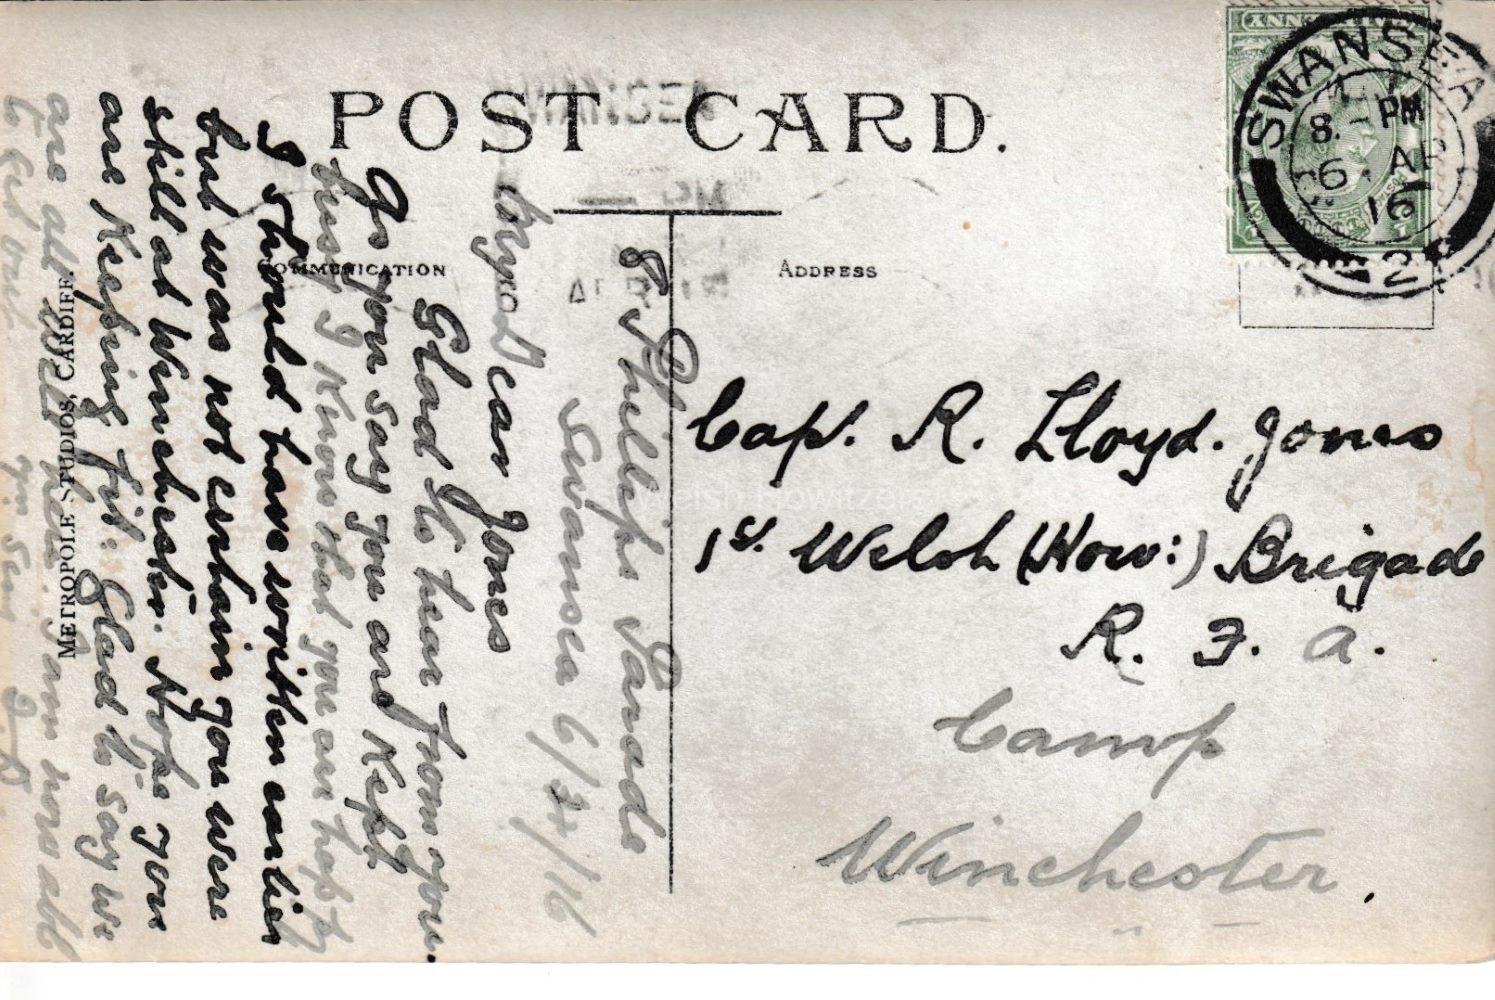 POST CARD.
COMMUNICATION
ADDRESS
METROPOLE STUDIOS, CARDIFF.
HALFPENNY
SWANSEA
8. - PM
6 AP
16
2
Welsh Howitzer
Cap. R. Lloyd. Jones
1st. Welsh (How:) Brigade
R. F. A.
Camp
Winchester,
8 Phillips Parade
Swansea 6/4/16
Dear Jones
Glad to hear from you.
As you say you are kept
busy I know that you are happy
I should have written earlier
but was not certain you were
still at Winchester. Hope you
are keeping fit. Glad to say we
are all well here. I am now able
to get out.